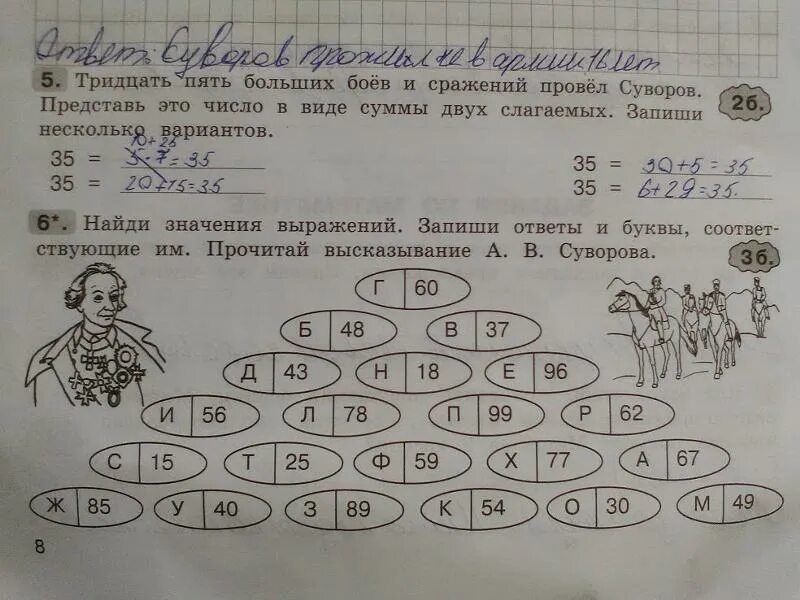 Ответ: Суворов прожил не в армии 16 лет
5. Тридцать пять больших боёв и сражений провёл Суворов.
Представь это число в виде суммы двух слагаемых. Запиши
несколько вариантов.
2б.
10+25
35 = 5·7=35
35 = 30+5=35
35 = 20+15=35
35 = 6+29=35.
6*. Найди значения выражений. Запиши ответы и буквы, соответ-
ствующие им. Прочитай высказывание А. В. Суворова.
3б.
Г 60
Б 48 В 37
Д 43 Н 18 Е 96
И 56 Л 78 П 99 Р 62
С 15 Т 25 Ф 59 Х 77 А 67
Ж 85 У 40 З 89 К 54 О 30 М 49
8